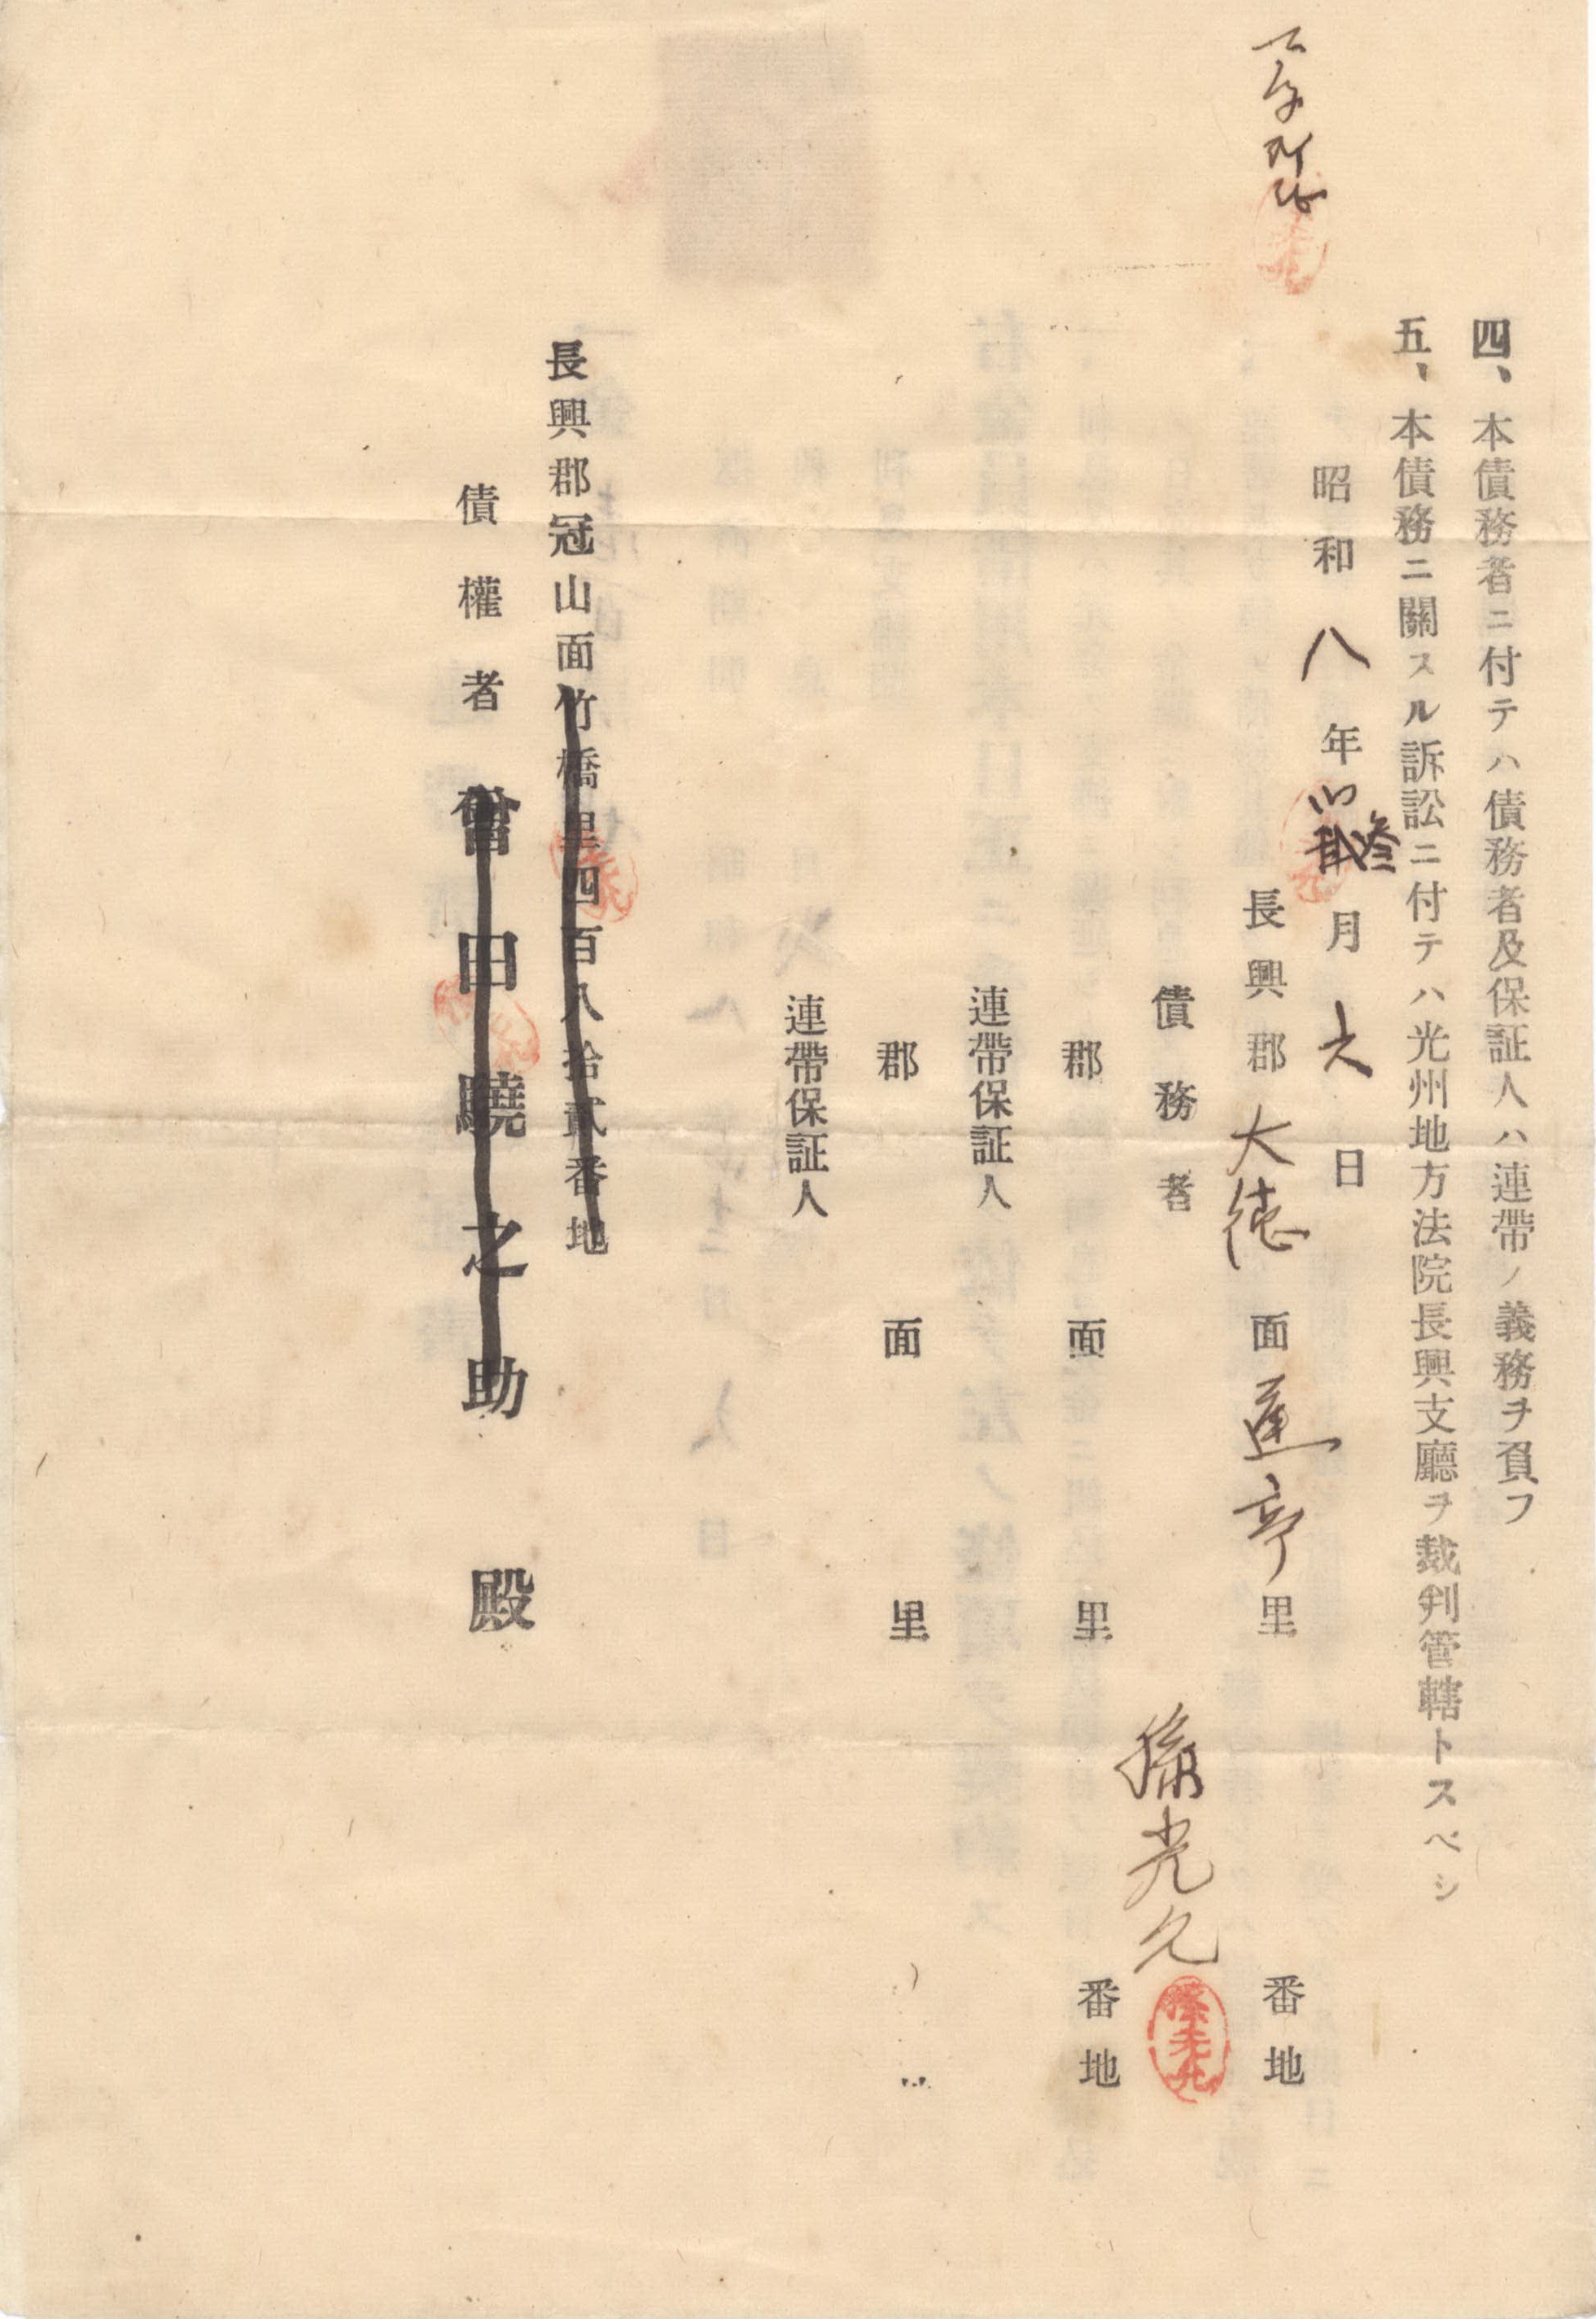 四、本債務者ニ付テハ債務者及保証人ハ連帶ノ義務ヲ負フ
五、本債務ニ關スル訴訟ニ付テハ光州地方法院長興支廳ヲ裁判管轄トスベシ
昭和八年參月六日
長興郡大德面蓮亭里番地
債務者 孫光允
郡面里番地
連帶保証人
郡面里
連帶保証人
長興郡冠山面竹橋里四百八拾貳番地
債權者會田驍之助殿